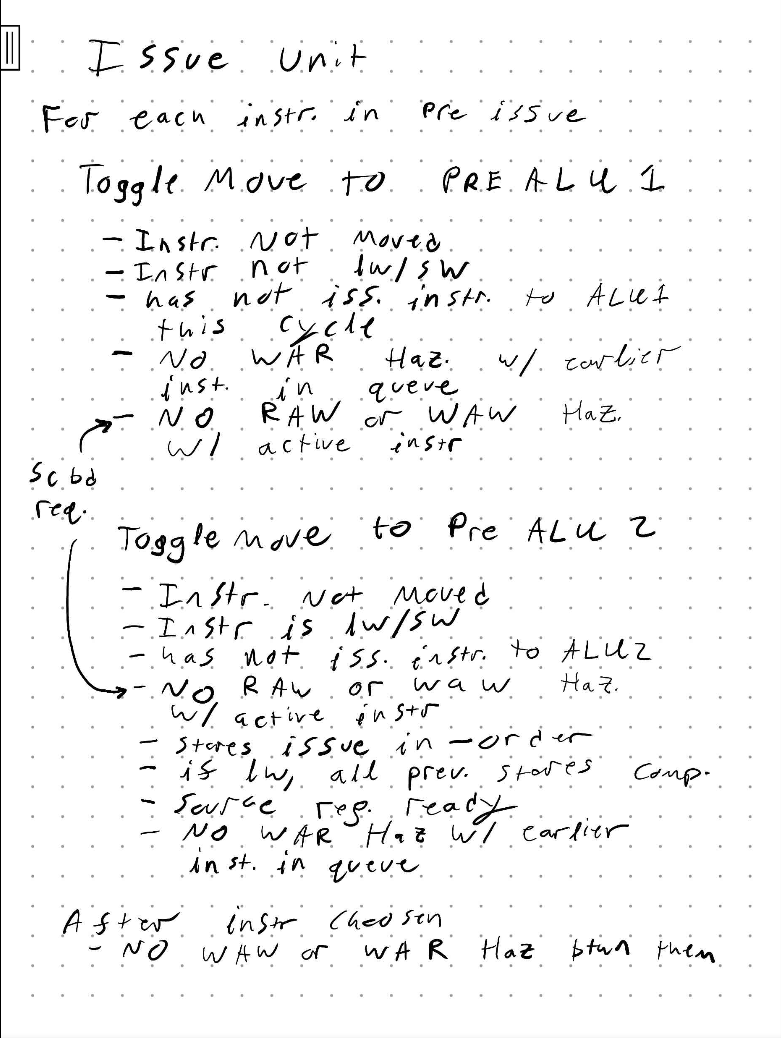 Issue Unit
For each instr. in Pre issue
Toggle Move to PRE ALU 1
- Instr. Not Moved
- Instr not lw/sw
- has not iss. instr. to ALU1
this cycle
- No WAR Haz. w/ earlier
inst. in queue
- NO RAW or WAW Haz.
w/ active instr
Scbd
req.
Toggle move to Pre ALU 2
- Instr. Not Moved
- Instr is lw/sw
- has not iss. instr. to ALU2
- NO RAW or WAW Haz.
w/ active instr
- Stores issue in-order
- if lw, all prev. stores comp.
- Source reg. ready
- NO WAR Haz w/ earlier
inst. in queue
After instr choosen
- NO WAW or WAR Haz btwn them